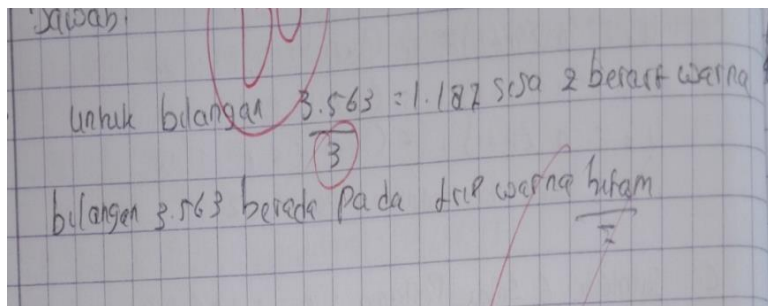 Jawab:
Untuk bilangan 3.563 = 1.187 sisa 2 berarti warna
3
bilangan 3.563 berada pada strip warna hitam